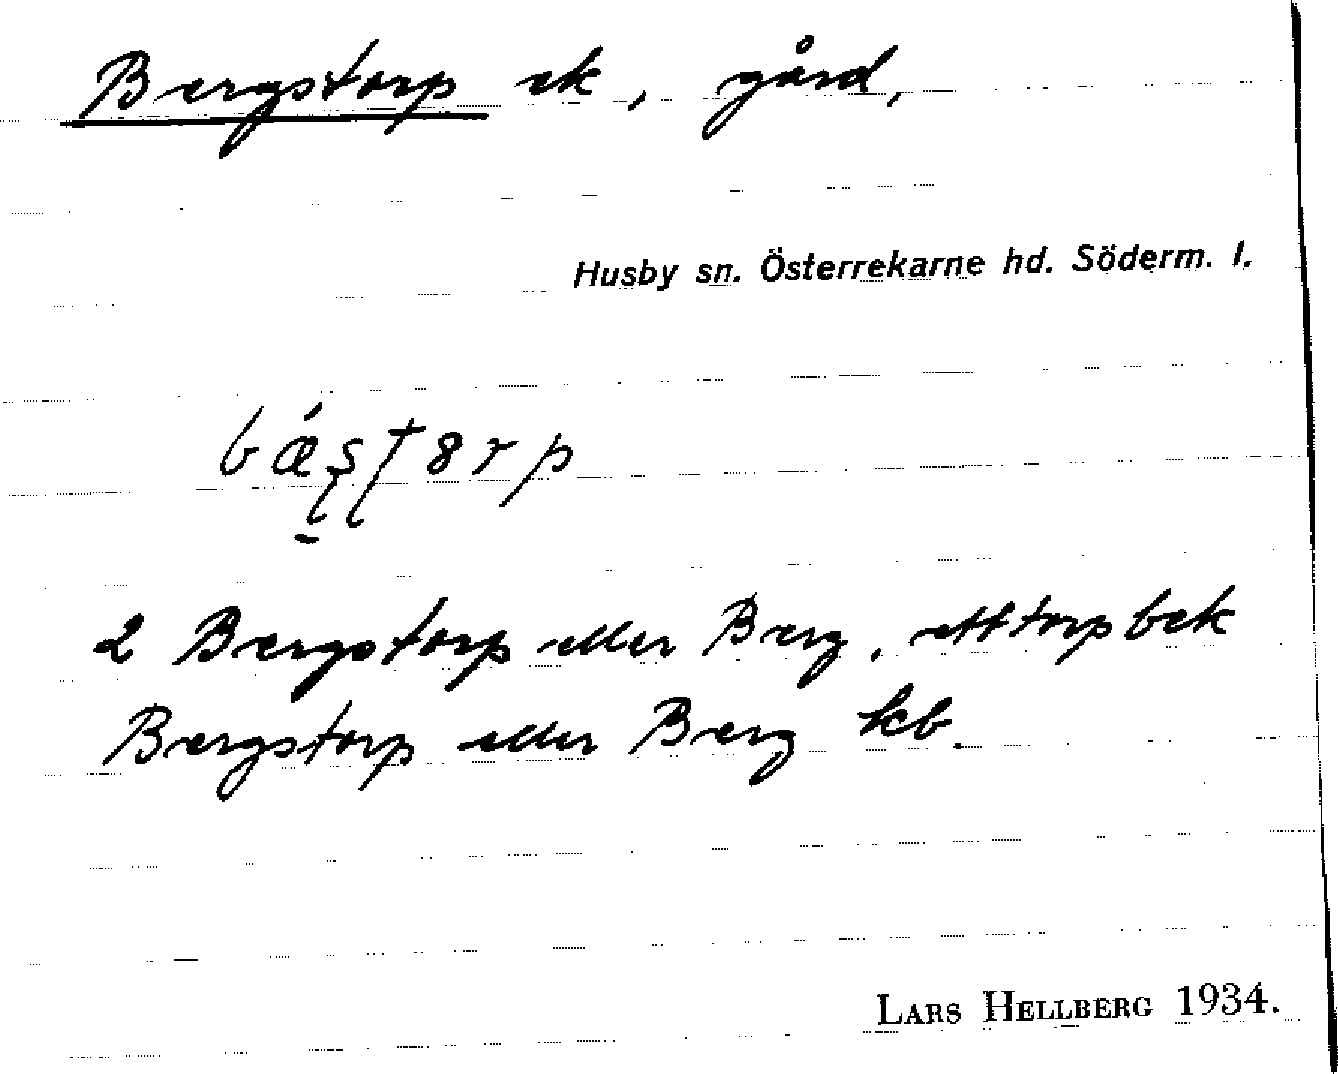 Bergstorp ek, gård,
Husby sn. Österrekarne hd. Söderm. l.
bǽʂʈ8rp
2 Bergstorp eller Berg, ett torp bek
Bergstorp eller Berg kb.
LARS HELLBERG 1934.